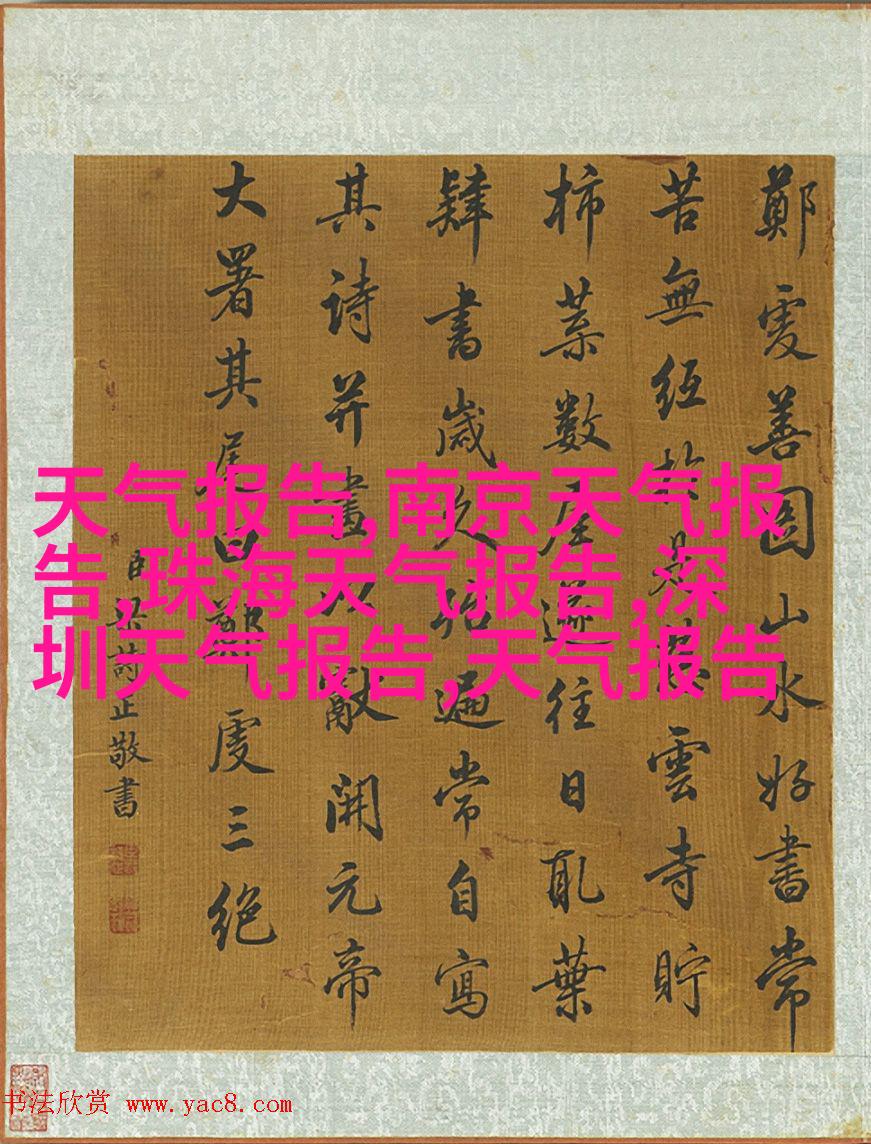 鄭虔善圖山水好書常
苦無紙於是雲寺貯
柿葉數屋遂往日取葉
肄書歲久殆遍常自寫
其詩并畫以獻開元帝
大署其尾曰鄭虔三絕
臣梁詩正敬書
天气报告,南京天气报
告,珠海天气报告,深
圳天气报告,天气报告
书法欣赏 www.yac8.com